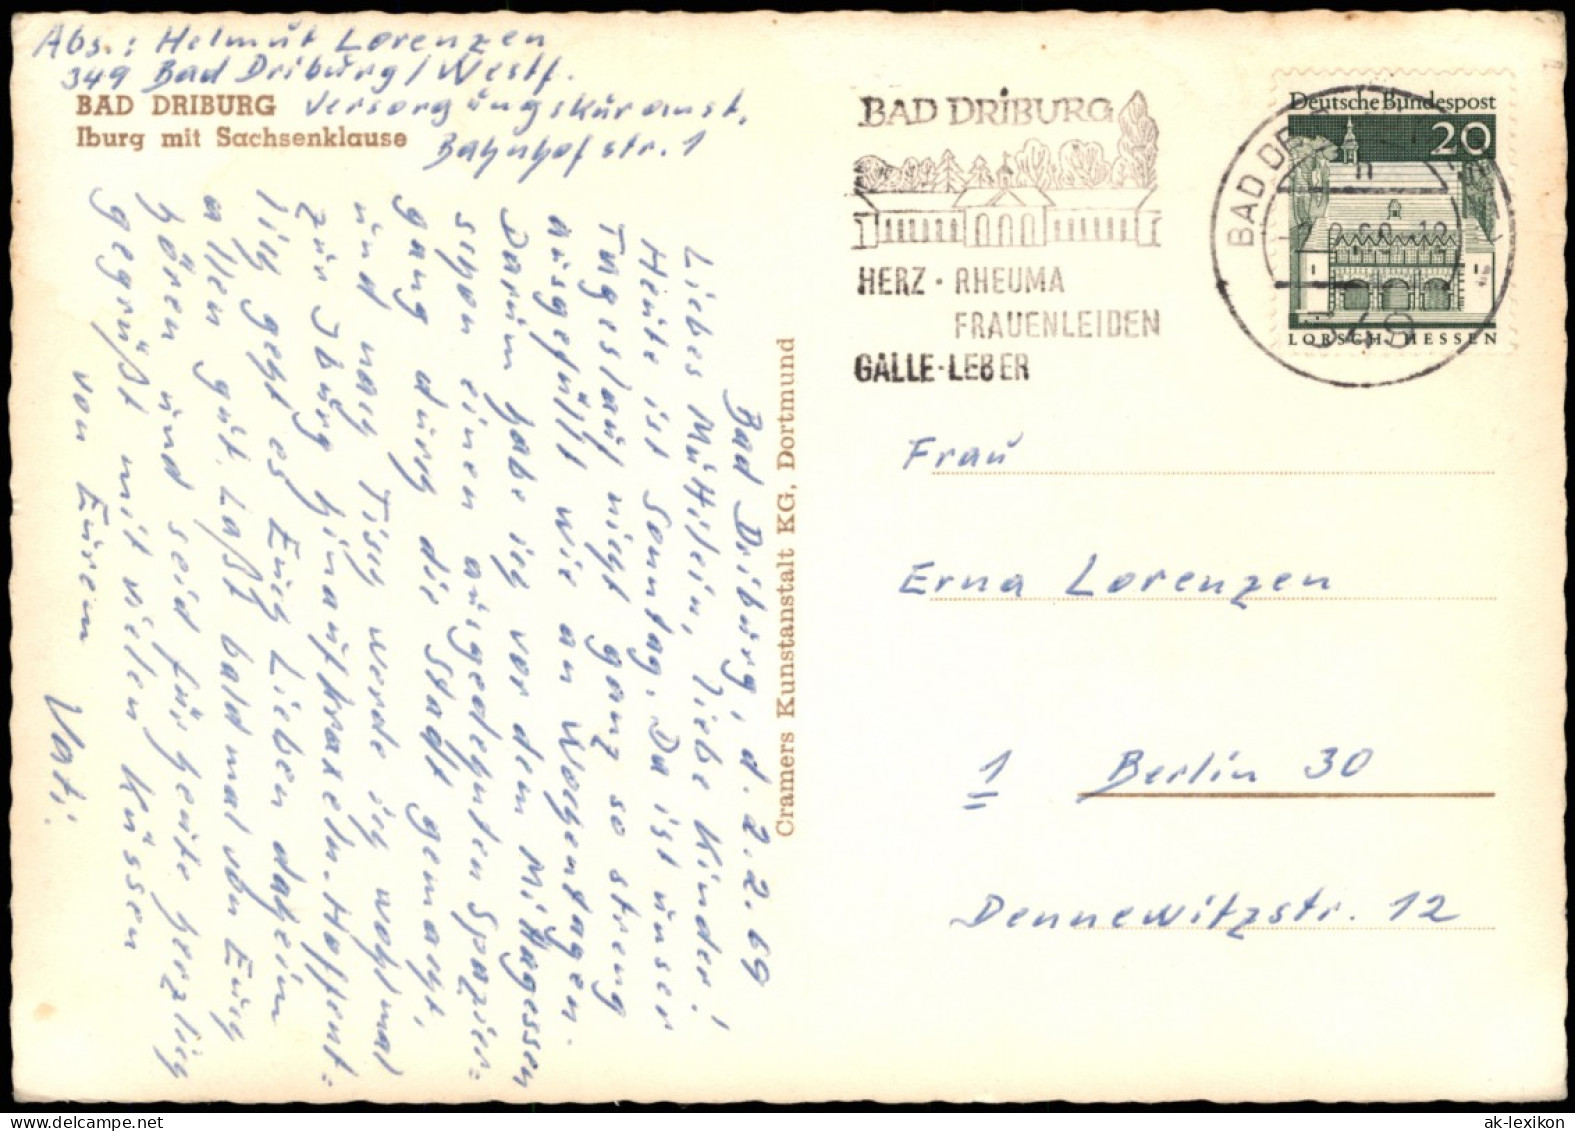 Abs.: Helmut Lorenzen
349 Bad Driburg/Westf.
Versorgungskuramt,
Bahnhofstr. 1
BAD DRIBURG
Iburg mit Sachsenklause
Bad Driburg, d. 2.2.69
Liebes Muttilein, liebe Kinder!
Heute ist Sonntag. Da ist unser
Tageslauf nicht ganz so streng
ausgefüllt wie an Wochentagen.
Darum habe ich vor dem Mittagessen
schon einen ausgedehnten Spazier=
gang durch die Stadt gemacht,
und nach Tisch werde ich wohl mal
zur Iburg hinaufkraxeln. Hoffent=
lich geht es Euch Lieben daheim
allen gut. Laßt bald mal von Euch
hören und seid für heute herzlich
gegrüßt mit vielen Küssen
von Eurem
Vati.
Cramers Kunstanstalt KG, Dortmund
BAD DRIBURG
HERZ · RHEUMA
FRAUENLEIDEN
GALLE · LEBER
Deutsche Bundespost
20
LORSCH, HESSEN
BAD DR
349
Frau
Erna Lorenzen
1 Berlin 30
Dennewitzstr. 12
ak-lexikon